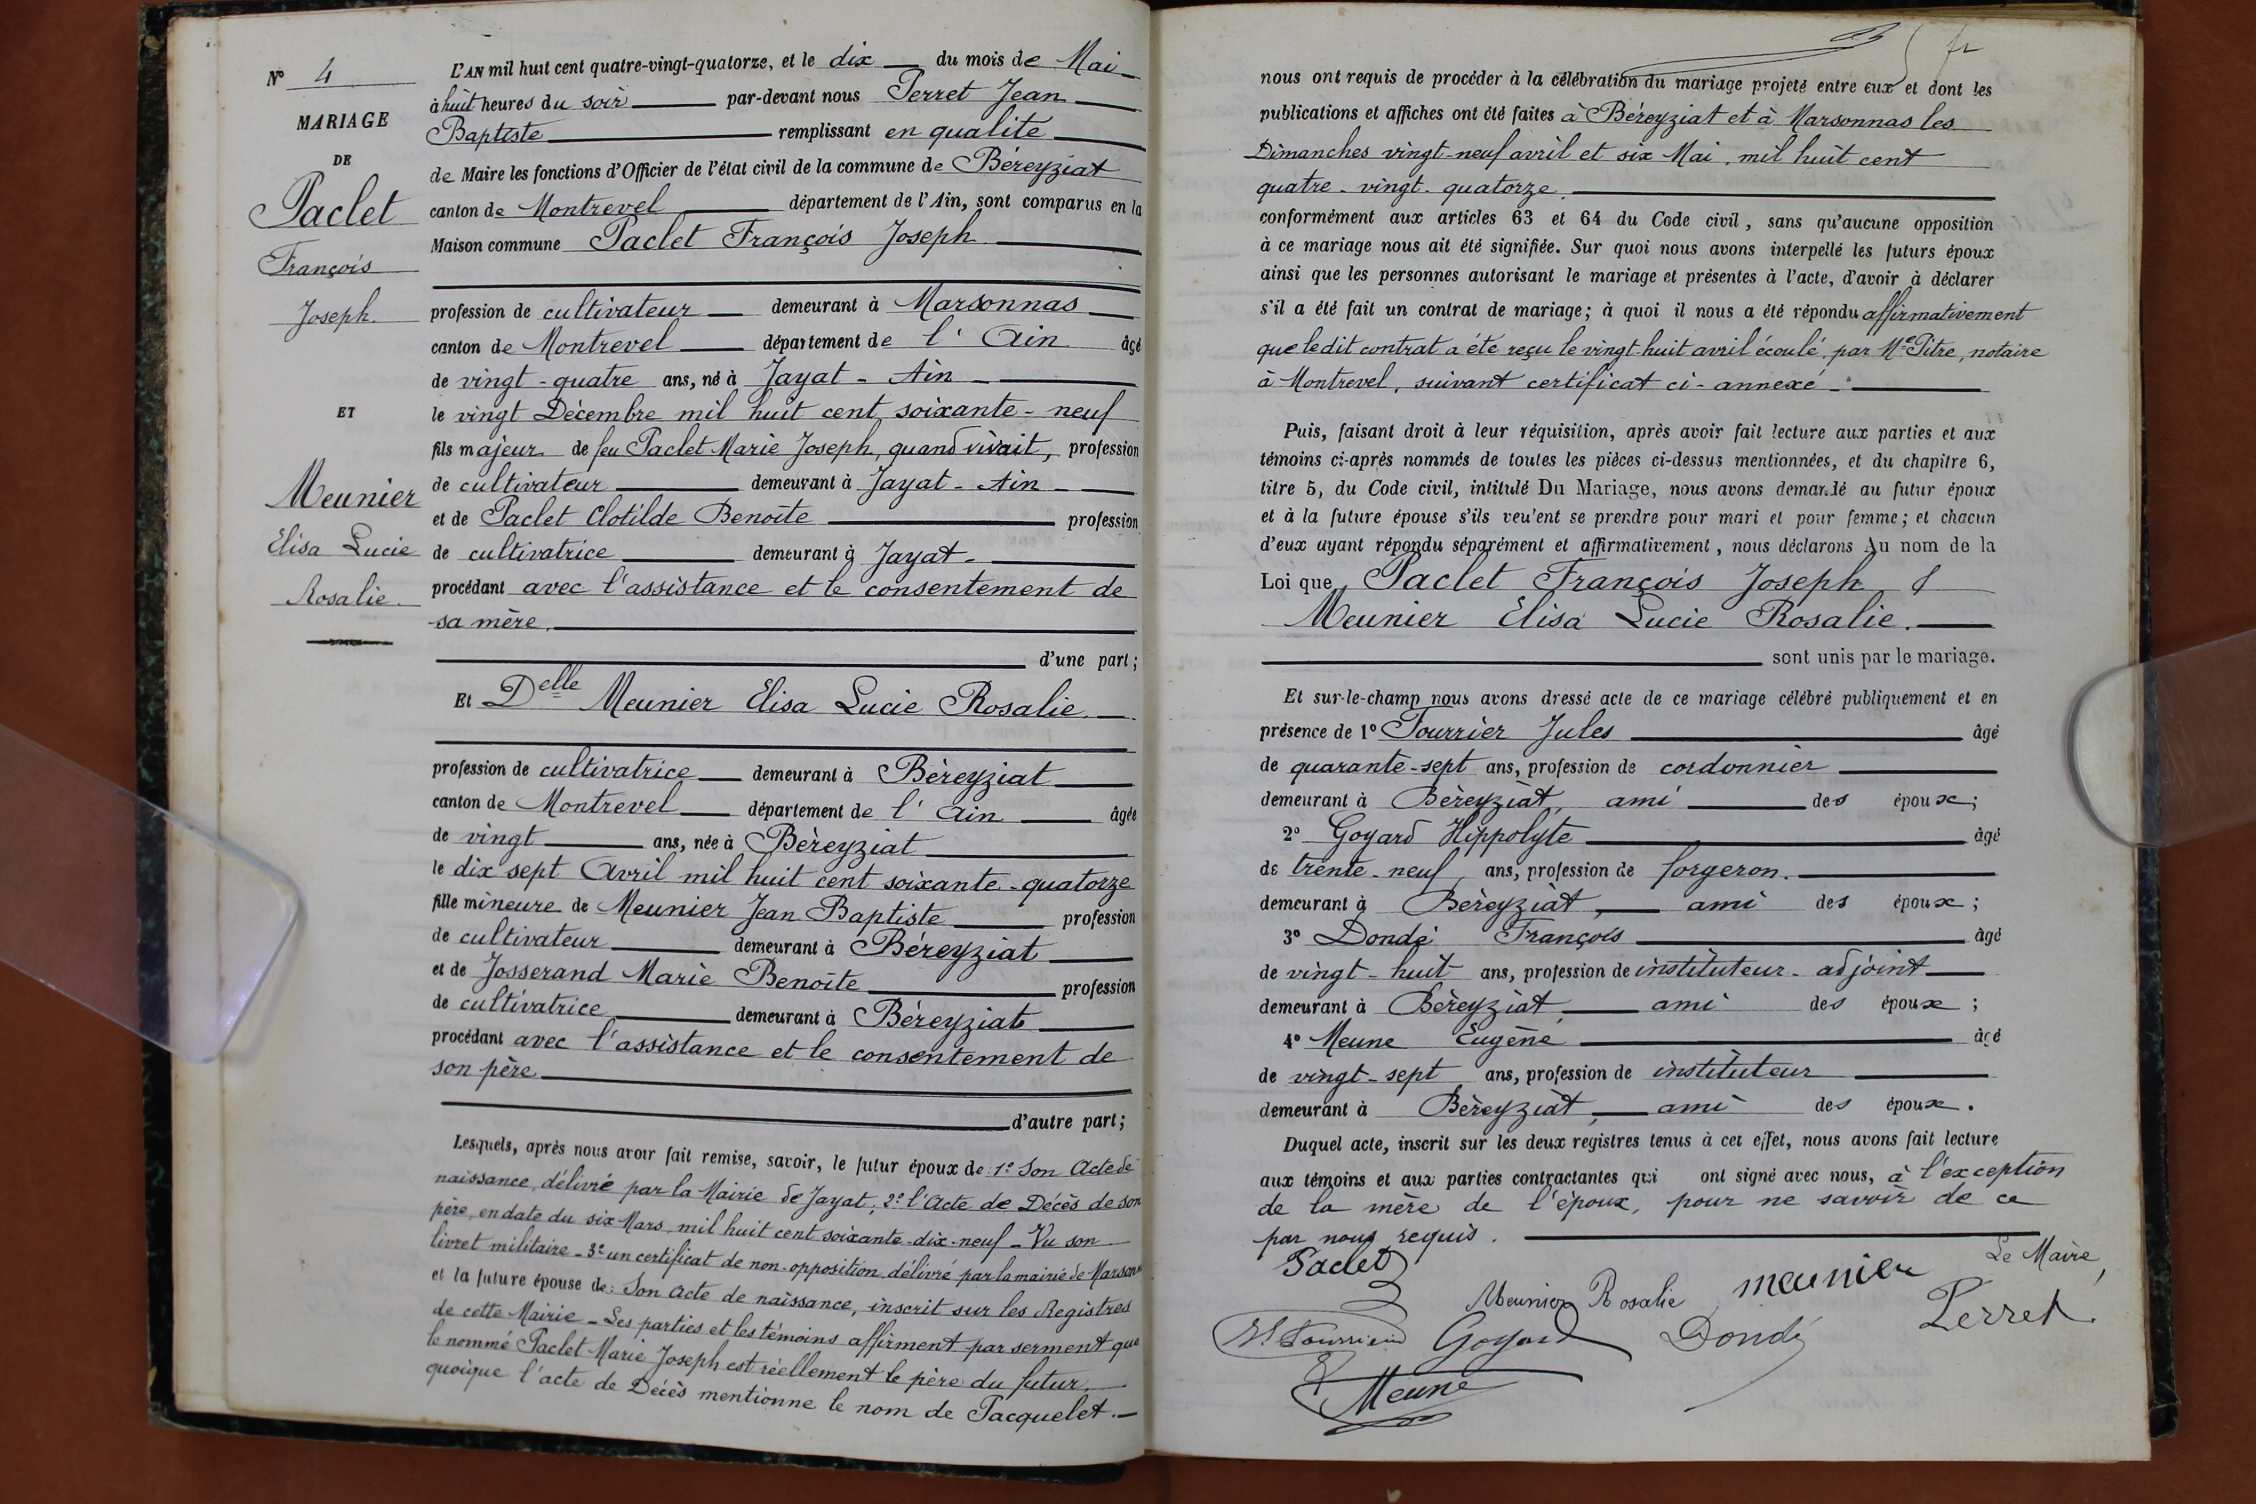 N° 4
MARIAGE
DE
Paclet
François
Joseph.
ET
Meunier
Elisa Lucie
Rosalie.
L'AN mil huit cent quatre-vingt-quatorze, et le dix du mois de Mai
à huit heures du soir par-devant nous Perret Jean
Baptiste remplissant en qualité
de Maire les fonctions d'Officier de l'état civil de la commune de Béreyziat
canton de Montrevel département de l'Ain, sont comparus en la
Maison commune Paclet François Joseph
profession de cultivateur demeurant à Marsonnas
canton de Montrevel département de l'Ain âgé
de vingt-quatre ans, né à Jayat - Ain -
le vingt Décembre mil huit cent soixante-neuf
fils majeur de feu Paclet Marie Joseph, quand vivait, profession
de cultivateur demeurant à Jayat - Ain -
et de Paclet Clotilde Benoîte profession
de cultivatrice demeurant à Jayat -
procédant avec l'assistance et le consentement de
sa mère.
d'une part;
Et Delle Meunier Elisa Lucie Rosalie.
profession de cultivatrice demeurant à Béreyziat
canton de Montrevel département de l'Ain âgée
de vingt ans, née à Béreyziat
le dix sept Avril mil huit cent soixante-quatorze
fille mineure de Meunier Jean Baptiste profession
de cultivateur demeurant à Béreyziat
et de Josserand Marie Benoîte profession
de cultivatrice demeurant à Béreyziat
procédant avec l'assistance et le consentement de
son père
d'autre part;
Lesquels, après nous avoir fait remise, savoir, le futur époux de: 1° Son Acte de
naissance, délivré par la Mairie de Jayat; 2° l'Acte de Décès de son
père, en date du six Mars mil huit cent soixante-dix-neuf - Vu son
livret militaire - 3° un certificat de non-opposition délivré par la mairie de Marsonnas
et la future épouse de: Son Acte de naissance, inscrit sur les Registres
de cette Mairie - Les parties et les témoins affirment par serment que
le nommé Paclet Marie Joseph est réellement le père du futur,
quoique l'acte de Décès mentionne le nom de Pacquelet. -
nous ont requis de procéder à la célébration du mariage projeté entre eux et dont les
publications et affiches ont été faites à Béreyziat et à Marsonnas les
Dimanches vingt-neuf avril et six Mai, mil huit cent
quatre-vingt-quatorze.
conformément aux articles 63 et 64 du Code civil, sans qu'aucune opposition
à ce mariage nous ait été signifiée. Sur quoi nous avons interpellé les futurs époux
ainsi que les personnes autorisant le mariage et présentes à l'acte, d'avoir à déclarer
s'il a été fait un contrat de mariage; à quoi il nous a été répondu affirmativement
que ledit contrat a été reçu le vingt-huit avril écoulé, par Me Pitre, notaire
à Montrevel, suivant certificat ci-annexé -.
Puis, faisant droit à leur réquisition, après avoir fait lecture aux parties et aux
témoins ci-après nommés de toutes les pièces ci-dessus mentionnées, et du chapitre 6,
titre 5, du Code civil, intitulé Du Mariage, nous avons demandé au futur époux
et à la future épouse s'ils veulent se prendre pour mari et pour femme; et chacun
d'eux ayant répondu séparément et affirmativement, nous déclarons Au nom de la
Loi que Paclet François Joseph &
Meunier Elisa Lucie Rosalie.
sont unis par le mariage.
Et sur-le-champ nous avons dressé acte de ce mariage célébré publiquement et en
présence de 1° Fourrier Jules âgé
de quarante-sept ans, profession de cordonnier
demeurant à Béreyziat, ami des époux;
2° Goyard Hippolyte âgé
de trente-neuf ans, profession de forgeron.
demeurant à Béreyziat, ami des époux;
3° Dondé François âgé
de vingt-huit ans, profession de instituteur-adjoint
demeurant à Béreyziat ami des époux;
4° Meune Eugène âgé
de vingt-sept ans, profession de instituteur
demeurant à Béreyziat, ami des époux.
Duquel acte, inscrit sur les deux registres tenus à cet effet, nous avons fait lecture
aux témoins et aux parties contractantes qui ont signé avec nous, à l'exception
de la mère de l'époux, pour ne savoir de ce
par nous requis.
Paclet
Meunier Rosalie
meunier
Le Maire,
Perret
Fourrier
Goyard
Dondé
Meune